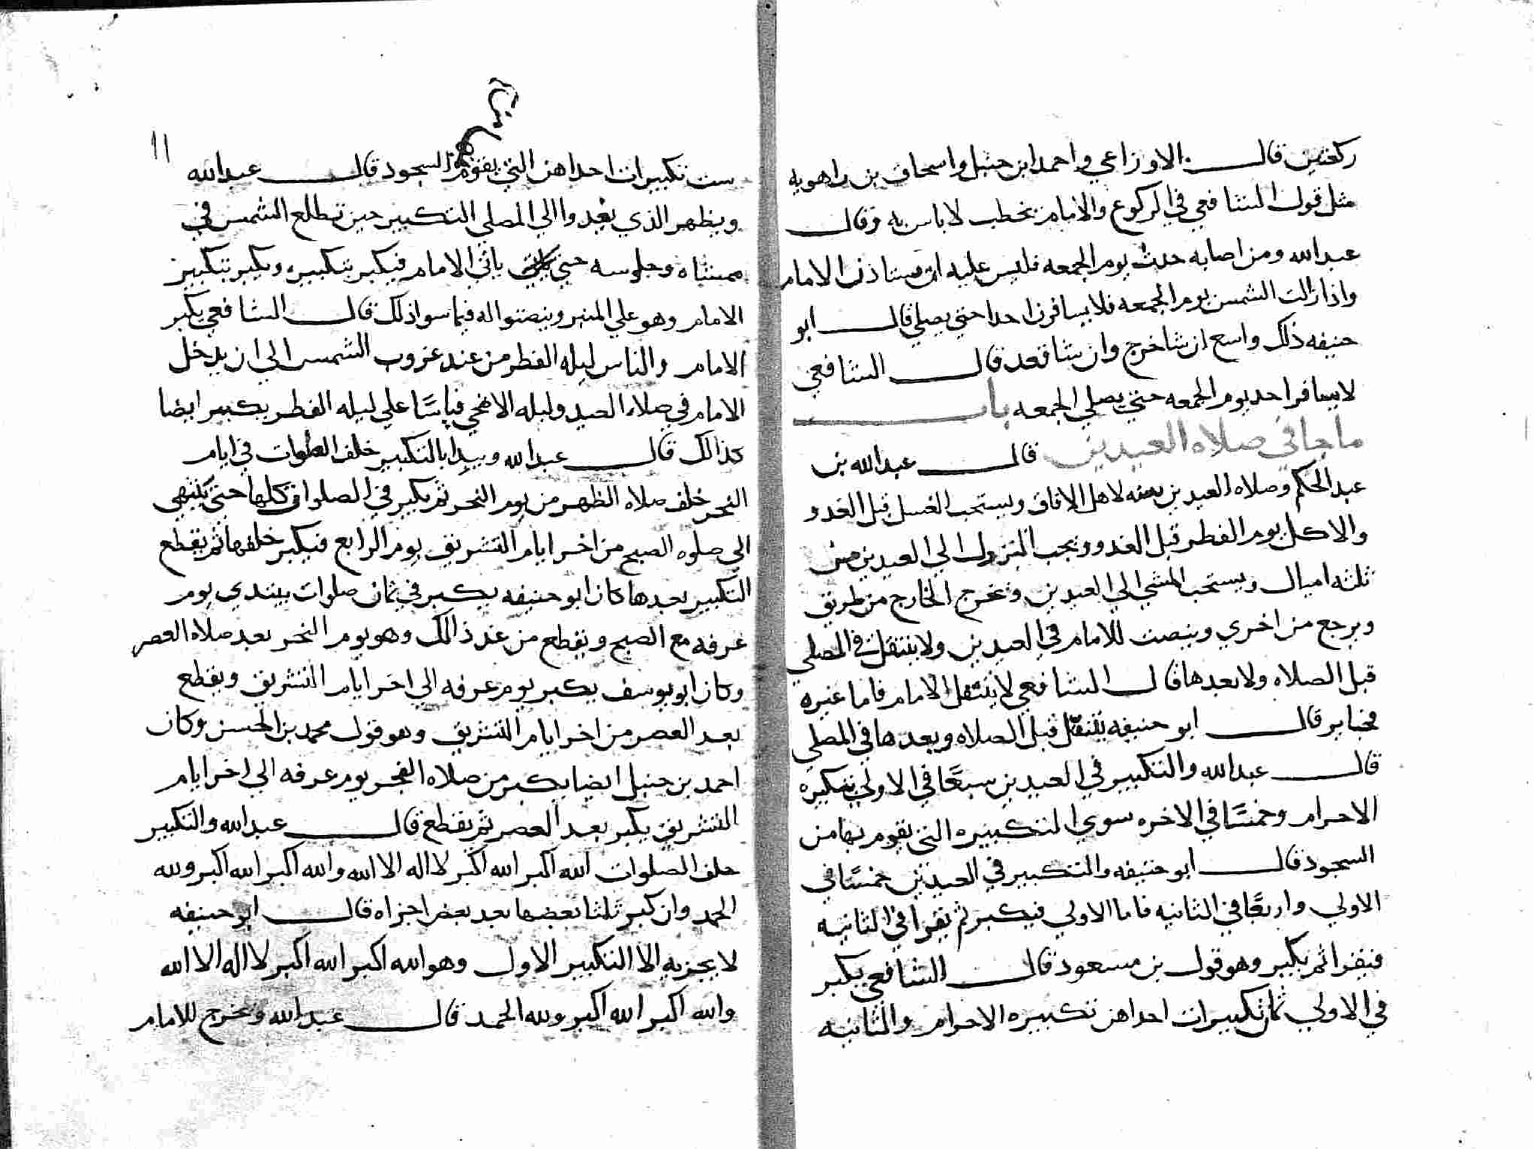 ركعتين قال الاوزاعي واحمد ابن حنبل واسحاق بن راهويه
مثل قول الشافعي في الركوع والامام يخطب لا باس به وقال
عبد الله ومن اصابه حدث يوم الجمعه فليس عليه ان يستاذن الامام
واذا زالت الشمس يوم الجمعه فلا يسافرن احدا حتي يصلي قال ابو
حنيفه ذلك واسع ان شا خرج وان شا قعد قال الشافعي
لا يسافر احد يوم الجمعه حتي يصلي الجمعه باب
ما جا في صلاه العيدين قال عبد الله بن
عبد الحكم وصلاه العيدين سنه لاهل الافاق ويستحب الغسل قبل الغدو
والاكل يوم الفطر قبل الغدو ويجب النزول الي العيدين من
ثلثه اميال ويستحب المشي الي العيدين ويخرج الخارج من طريق
ويرجع من اخري وينصت للامام في العيدين ولا يتنفل في المصلي
قبل الصلاه ولا بعدها قال الشافعي لا يتنفل الامام فاما غيره
فخاير قال ابو حنيفه يتنفل قبل الصلاه وبعدها في المصلي
قال عبد الله والتكبير في العيدين سبعا في الاولي بتكبيره
الاحرام وخمسا في الاخره سوي التكبيره التي يقوم بها من
السجود قال ابو حنيفه والتكبير في العيدين خمسا في
الاولي واربعا في الثانيه فاما الاولي فيكبر ثم يقرا في الثانيه
فيقرا ثم يكبر وهو قول بن مسعود قال الشافعي يكبر
في الاولي ثمان تكبيرات احداهن تكبيره الاحرام والثانيه
١١
ست تكبيرات احداهن التي يقوم السجود قال عبد الله
ويظهر الذي يغدوا الي المصلي التكبير حين تطلع الشمس في
ممشاه وجلوسه حتي ياتي الامام فيكبر بتكبيره ويكبر بتكبير
الامام وهو علي المنبر وينصتوا له فيما سوا ذلك قال الشافعي يكبر
الامام والناس ليله الفطر من عند غروب الشمس الي ان يدخل
الامام في صلاه العيد وليله الاضحي قياسا علي ليله الفطر يكبر ايضا
كذالك قال عبد الله ويبدا بالتكبير خلف الصلوات في ايام
النحر خلف صلاه الظهر من يوم النحر ثم يكبر في الصلوات كلها حتي ينتهي
الي صلوه الصبح من اخر ايام التشريق يوم الرابع فيكبر خلفها ثم يقطع
التكبير بعدها كان ابو حنيفه يكبر في ثمان صلوات يبتدي يوم
عرفه مع الصبح ويقطع من عند ذالك وهو يوم النحر بعد صلاه العصر
وكان ابو يوسف يكبر يوم عرفه الي اخر ايام التشريق ويقطع
بعد العصر من اخر ايام التشريق وهو قول محمد بن الحسن وكان
احمد بن حنبل ايضا يكبر من صلاه الفجر يوم عرفه الي اخر ايام
التشريق يكبر بعد العصر ثم يقطع قال عبد الله والتكبير
خلف الصلوات الله اكبر الله اكبر لا اله الا الله والله اكبر الله اكبر ولله
الحمد وان كبر ثلثا بعضها بعد بعض اجزاه قال ابو حنيفه
لا يجزيه الا التكبير الاول وهو الله اكبر الله اكبر لا اله الا الله
والله اكبر الله اكبر ولله الحمد قال عبد الله ويخرج للامام